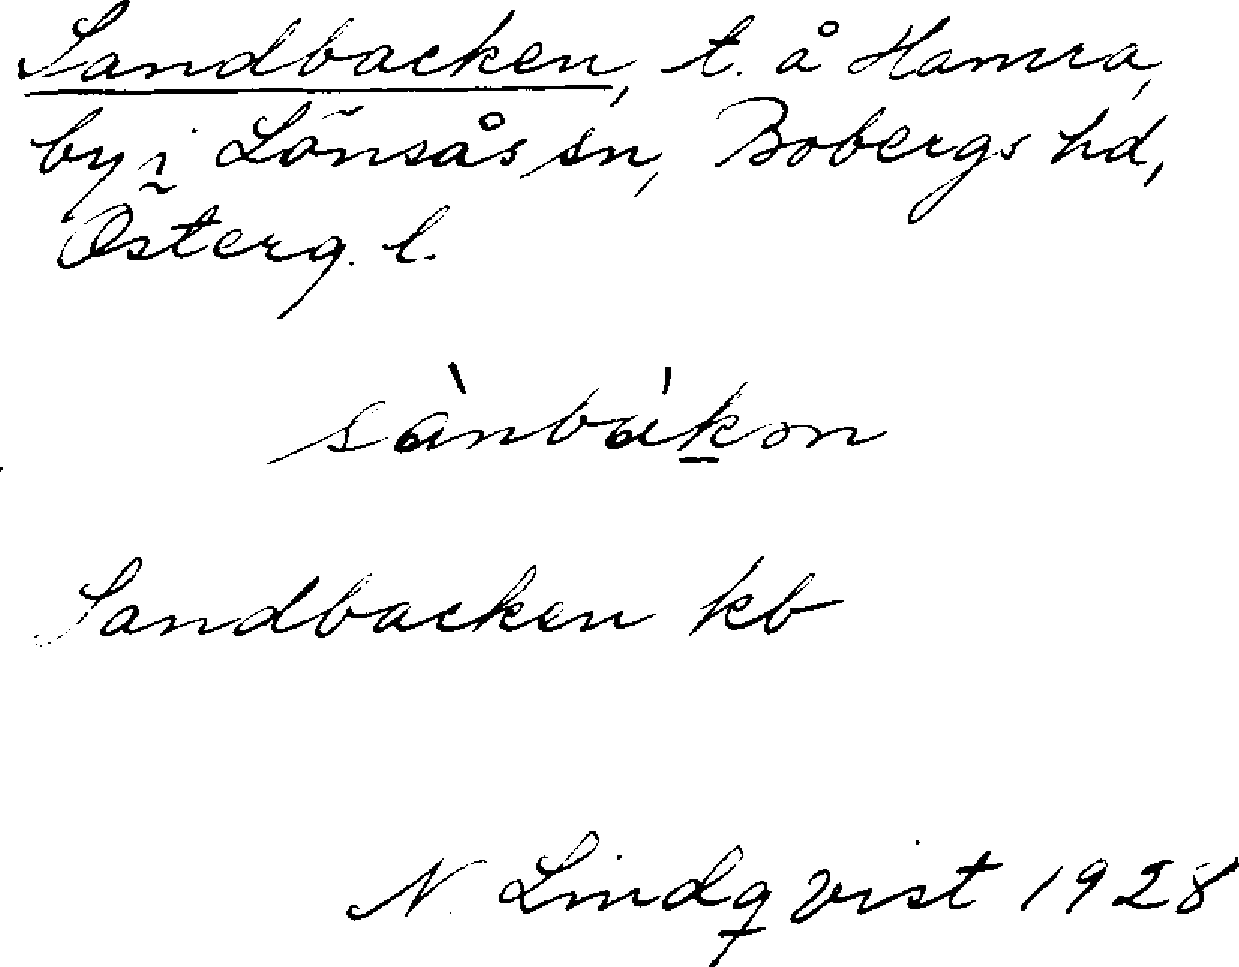 Sandbacken, t. å Hamra,
by i Lönsås sn, Bobergs hd,
Österg. l.
sànbákən
Sandbacken kb
N. Lindqvist 1928